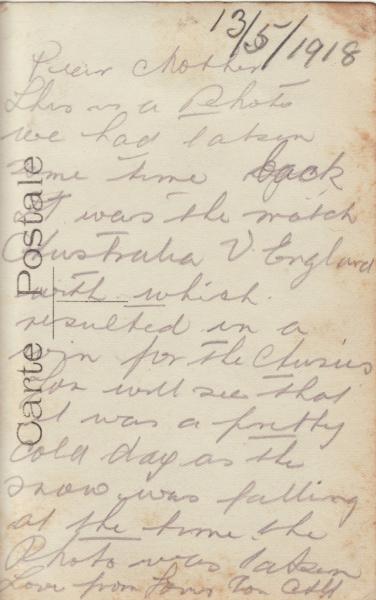 13/5/1918
Dear Mother
This is a Photo
we had taken
some time back
it was the match
Australia V. England
with which
resulted in a
win for the Aussies
You will see that
it was a pretty
cold day as the
snow was falling
at the time the
Photo was taken
Love from Son
Carte Postale